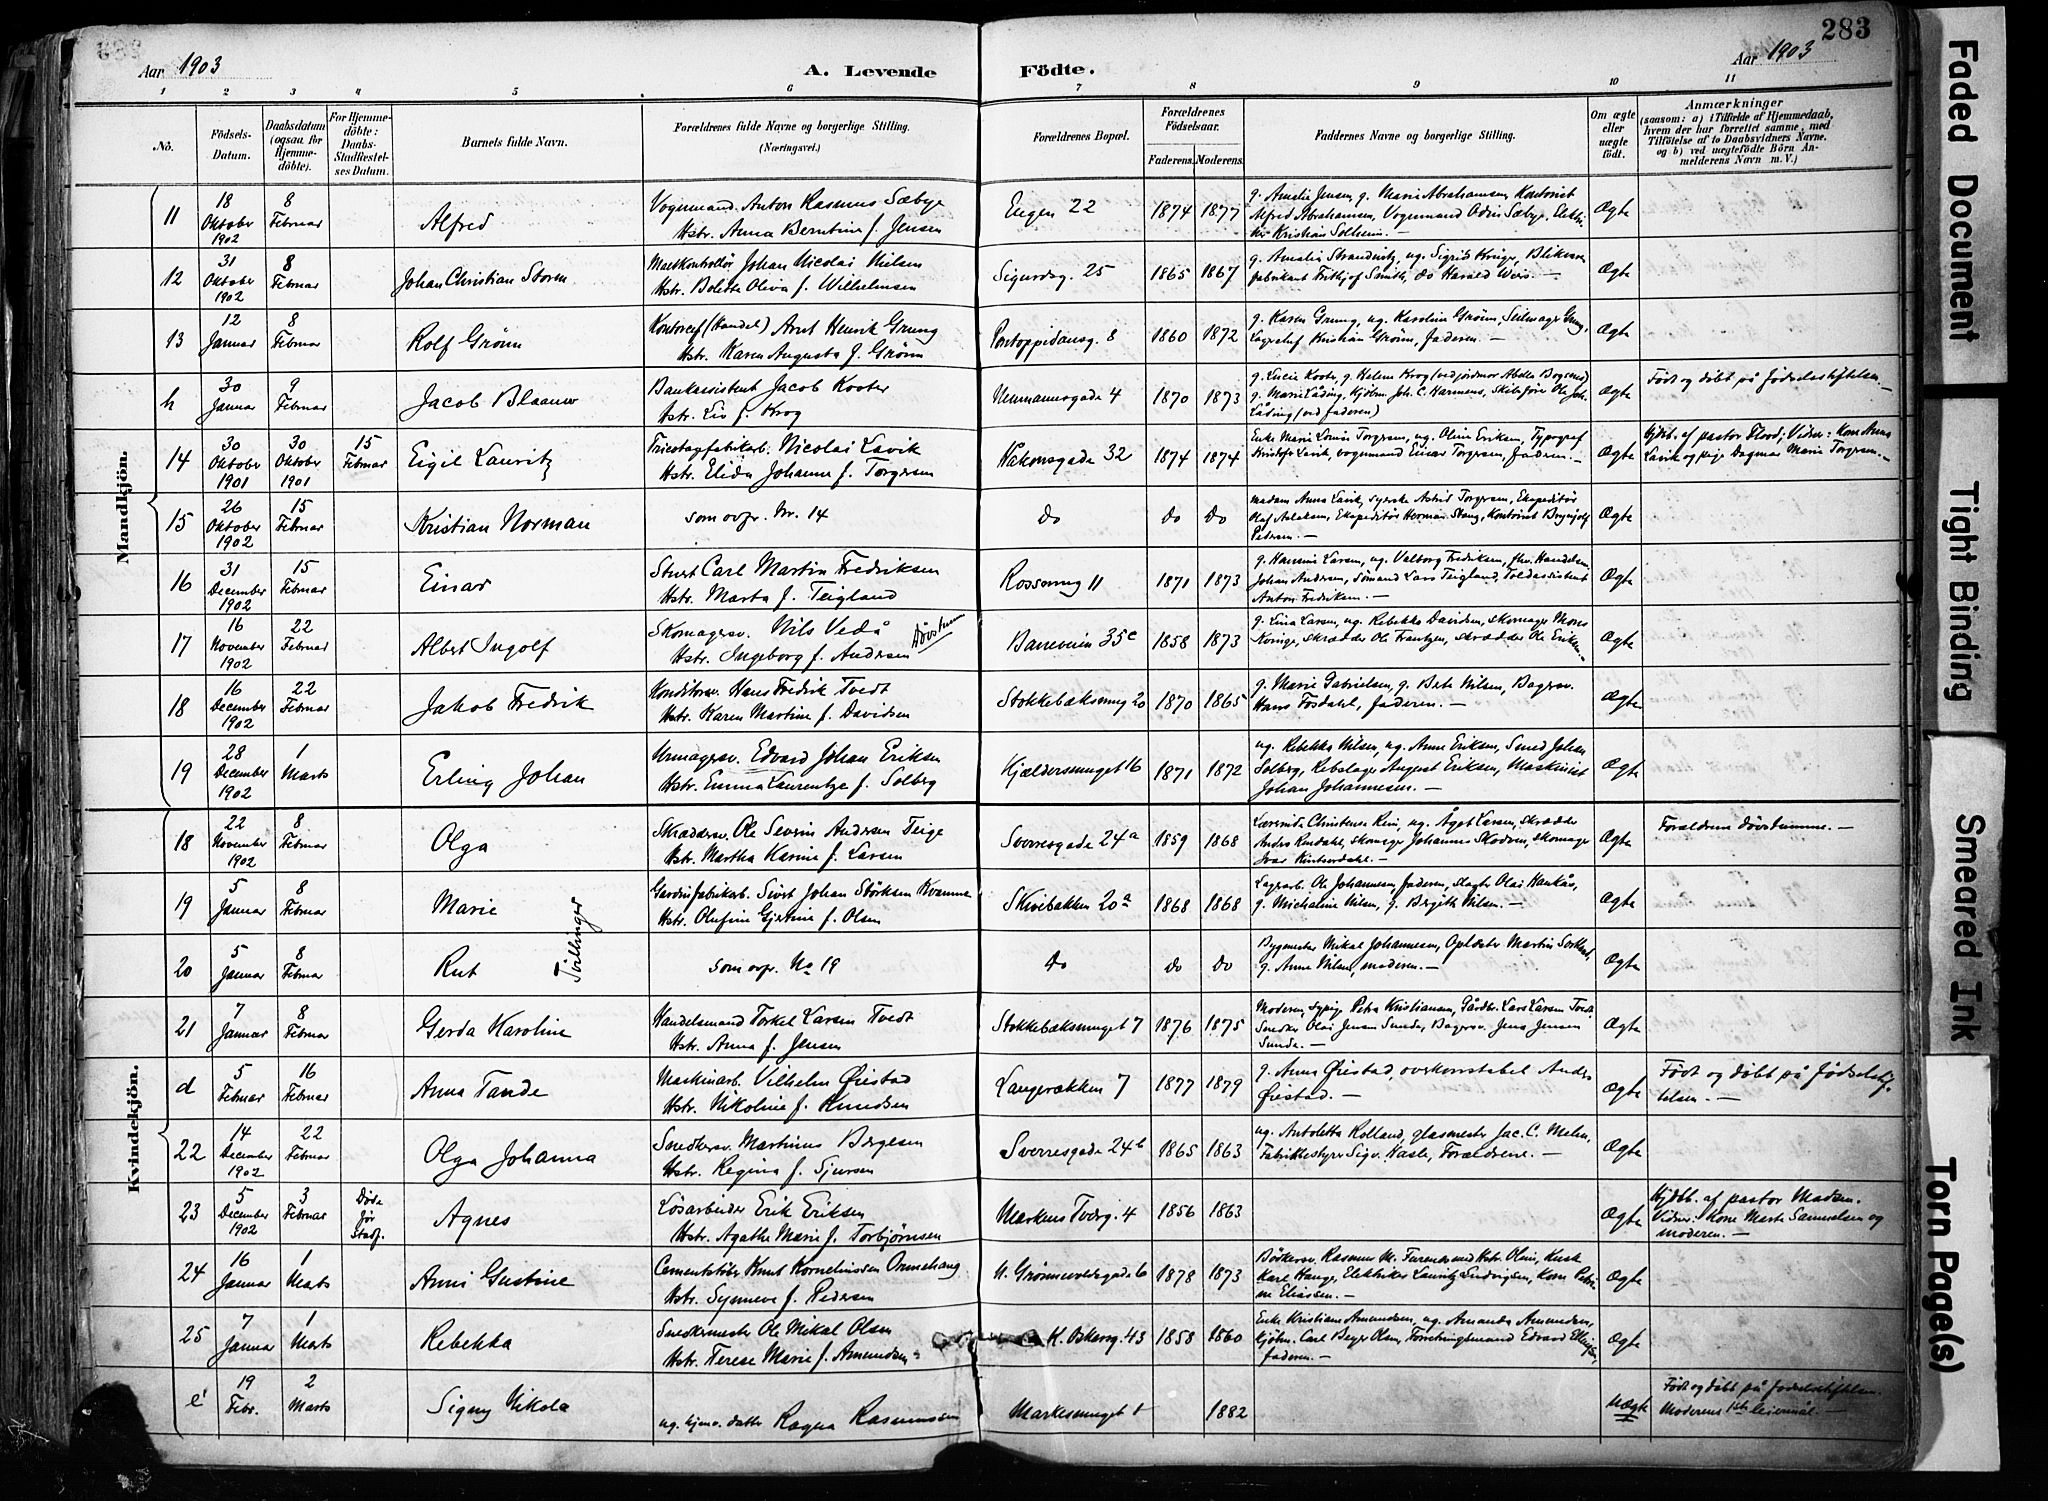 283
Aar 1903
A. Levende
Födte.
Aar 1903
1 2 3 4 5 6 7 8 9 10 11
No.
Födsels-
Datum.
Daabsdatum
(ogsaa for
Hjemme-
döbte).
For Hjemme-
döbte:
Daabs-
Stadfæstel-
ses Datum.
Barnets fulde Navn.
Forældrenes fulde Navne og borgerlige Stilling.
(Næringsvei.)
Forældrenes Bopæl.
Forældrenes
Födselsaar.
Faderens. Moderens.
Faddernes Navne og borgerlige Stilling.
Om ægte
eller
uægte
födt.
Anmærkninger
(saasom: a) i Tilfælde af Hjemmedaab,
hvem der har forrettet samme, med
Tilföielse af to Daabsvidners Navne.
og b) ved uægtefödte Börn An-
melderens Navn m.V.)
Mandkjön.
11
18 Oktober 1902
8 Februar
Alfred
Vognmand. Anton Rasmus Sæbye
Hstr. Anna Berntine f. Jensen
Engen 22
1874 1877
g. Amalie Jensen, g. Marie Abrahamsen, Kontorist
Alfred Abrahamsen, Vognmand Odin Sæbye, Elektri-
ker Kristian Solheim. —
Ægte
12
31 Oktober 1902
8 Februar
Johan Christian Storm
Maskontrollör Johan Nicolai Nilsen
Hstr. Bolette Oliva f. Wilhelmsen
Sigurdsg. 25
1865 1867
g. Amalie Strandwitz, ug. Sigrid Krüger, Blikvare-
fabrikant Frithjof Smith, do Harald Weis. —
Ægte
13
12 Januar
8 Februar
Rolf Grönn
Kontorchef (Handel) Arnt Henrik Grung
Hstr. Karen Augusta f. Grönn
Pontoppidansg. 8
1860 1872
g. Karen Grung, ug. Karoline Grönn, Seilmager Grung,
Lagerchef Kristian Grönn, Faderen. —
Ægte
h
30 Januar
9 Februar
Jacob Blaauw
Bankassistent Jacob Kooter
Hstr. Liv f. Krog
Neumannsgade 4
1870 1873
g. Lucie Kooter, g. Helene Krog (ved jordmor Abelle Bogsnes)
g. Marie Låding, Kjöbm. Joh. C. Harmens, Skibsförer Ole Joh.
Låding (ved faderen)
Ægte
Født og døbt på fødselsstiftelsen. —
14
30 Oktober 1901
30 Oktober 1901
15 Februar
Eigil Lauritz
Tricotagfabrikarb. Nicolai Lavik
Hstr. Elida Johanne f. Torgersen
Håkonsgade 32
1874 1874
Enke Marie Lovise Torgersen, ug. Oline Eriksen, Typograf
Kristofer Lavik, vognmand Einar Torgersen, Faderen. —
Ægte
Hjdöbt. af pastor Flood; Vidner: Kone Anna
Lavik og pige Dagmar Marie Torgersen. —
15
26 Oktober 1902
15 Februar
Kristian Norman
som ovfr. Nr. 14
do
do do
madam Anna Lavik, syerske Astrid Torgersen, Ekspeditör
Olaf Aslaksen, Ekspeditör Herman Stang, Kontorist Brynjolf
Pedersen. —
Ægte
16
31 December 1902
15 Februar
Einar
Stuert Carl Martin Fredriksen
Hstr. Marta f. Teigland
Rossesmug 11
1871 1873
g. Hansine Larsen, ug. Valborg Fredriksen, fhv. Handelsm.
Johan Andersen, Sömand Lars Teigland, Toldassistent
Anton Fredriksen. —
Ægte
17
16 November 1902
22 Februar
Albert Ingolf
Skomagersv. Nils Vedå
Hstr. Ingeborg f. Andersen
Døvstumme
Baneveien 35c
1858 1873
g. Lina Larsen, ug. Rebekka Davidsen, skomager Mons
Korsige, skrædder Ole Frantzen, skrædder Ole Eriksen. —
Ægte
18
16 December 1902
22 Februar
Jakob Fredrik
Konditorsv. Hans Fredrik Tvedt
Hstr. Karen Martine f. Davidsen
Stokkebæksmug 20
1870 1865
g. Marie Gabrielsen, g. Berte Nilsen, Bagersv.
Hans Fosdahl, faderen. —
Ægte
19
28 December 1902
1 Marts
Erling Johan
Urmagersv. Edvard Johan Eriksen
Hstr. Emma Laurentze f. Solberg
Kjældersmuget 16
1871 1872
ug. Rebekka Nilsen, ug. Anne Eriksen, Smed Johan
Solberg, Rebslager August Eriksen, Maskinist
Johan Johannesen. —
Ægte
Kvindekjön.
18
22 November 1902
8 Februar
Olga
Skræddersv. Ole Severin Andersen Teige
Hstr. Martha Karine f. Larsen
Sverresgade 24a
1859 1868
Lærerinde Christense Rein, ug. Ågot Larsen, skrædder
Anders Rendahl, skomager Johannes Skodven, skomager
Ivar Kinserdahl. —
Ægte
Forældrene døvstumme. —
19
5 Januar
8 Februar
Marie
Gardinfabrikarb. Sivert Johan Störksen Kvamme
Hstr. Olufine Gjertine f. Olsen
Skivebakken 20a
1868 1868
Lagerarb. Ole Johannesen, Faderen, slagter Olai Haukås,
g. Michaline Nilsen, g. Bergitte Nilsen. —
Ægte
Tvillinger
20
5 Januar
8 Februar
Rut
som ovfr. No 19
do
do do
Bygmester Mikal Johannesen, Oplöster Martin Sortland,
g. Anne Nilsen, moderen. —
Ægte
21
7 Januar
8 Februar
Gerda Karoline
Handelsmand Torkel Larsen Tvedt
Hstr. Anna f. Jensen
Stokkebæksmuget 7
1876 1875
Moderen, sypige Petra Kristiansen, Gårdbr. Lars Larsen Tvedt,
Snedker Olai Jensen Sunde, Bagersv. Jens Jensen
Sunde. —
Ægte
d
5 Februar
16 Februar
Anna Tande
Maskinarb. Vilhelm Øiestad
Hstr. Nikoline f. Knudsen
Langerækken 7
1877 1879
g. Anna Øiestad, overkonstabel Anders
Øiestad. —
Ægte
Født og døbt på fødselsstif-
telsen. —
22
14 December 1902
22 Februar
Olga Johanna
Snedkersv. Martinus Børgesen
Hstr. Regina f. Sjursen
Sverresgade 24b
1865 1863
ug. Antoletta Rolland, glasmester Jac. C. Mehn,
Fabrikbestyrer Sigv. Hasle, Forældrene. —
Ægte
23
5 December 1902
3 Februar
Döde för Stadf.
Agnes
Løsarbeider Erik Eriksen
Hstr. Agathe Marie f. Torbjørnsen
Markens Tverg. 4
1856 1863
Ægte
Hjdbt. af pastor Madsen.
Vidner: Kone Marta Samuelsen og
moderen. —
24
16 Januar
1 Marts
Anni Gustine
Cementstöber Knut Kornelinssen Ormehaug
Hstr. Synneve f. Pedersen
N. Grönnevoldsgade 6
1878 1873
Bödkersv. Rasmus M. Furenes med Hstr. Oline, Kusk
Karl Hauge, Elektriker Lauritz Ludvigsen, Kone Petri-
ne Eliassen. —
Ægte
25
7 Januar
1 Marts
Rebekka
Snedkermester Ole Mikal Olsen
Hstr. Terese Marie f. Amundsen
K. Oskarsg. 43
1858 1860
Enke Kristiane Amundsen, ug. Amanda Amundsen,
Kjöbm. Carl Beyer Olsen, Forretningsmand Edvard Ellingsen,
faderen. —
Ægte
e
19 Febr.
2 Marts
Signy Nikola
ug. hjmv. datter Ragna Rasmussen
Markesmuget 1
1882
Uægte
Født og døbt på fødselsstiftelsen
Moderens 1ste leiermål. —
Faded Document
Tight Binding
Smeared Ink
Torn Page(s)